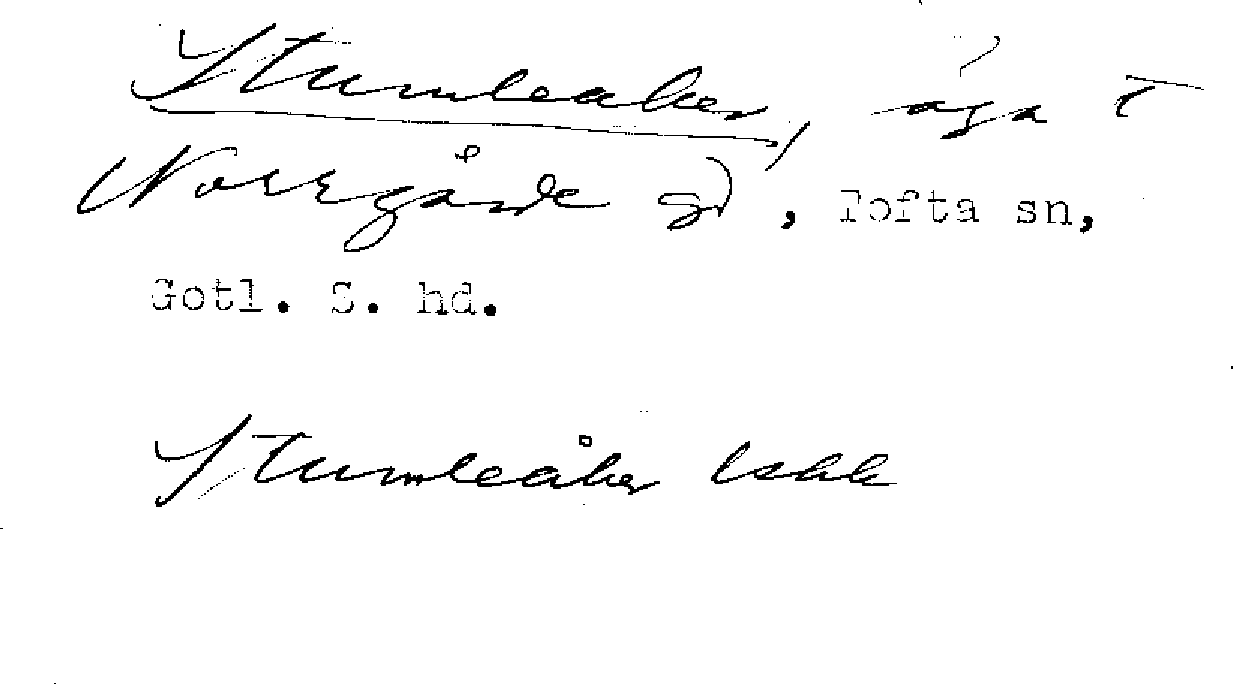 Stumleaker, äga t
Norrgårde gd, Tofta sn,
Gotl. S. hd.
Stumleåker Lskk